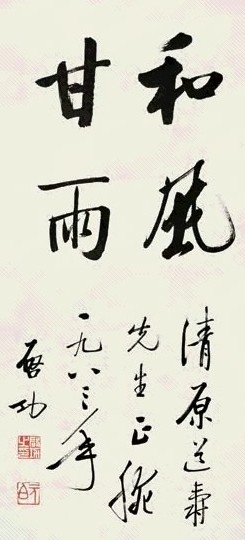 和風
甘雨
清原道壽
先生正腕
一九八三年
啓功